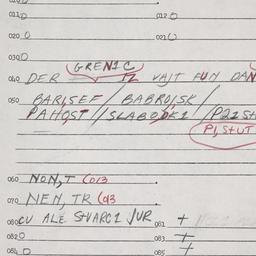 011 0 012 0
020 0 021 0
030 0
GRENIC
040 DER IZ VAJT FUN DAN
050 BARISEF / BABRUJSK
PAHOST / SLABODKI / P22 St
PIStUT
060 NON, T
070 NEN, TR
080 CU ALE STVARCI JUR 081 +
082 0 083 +
084 0 085 +